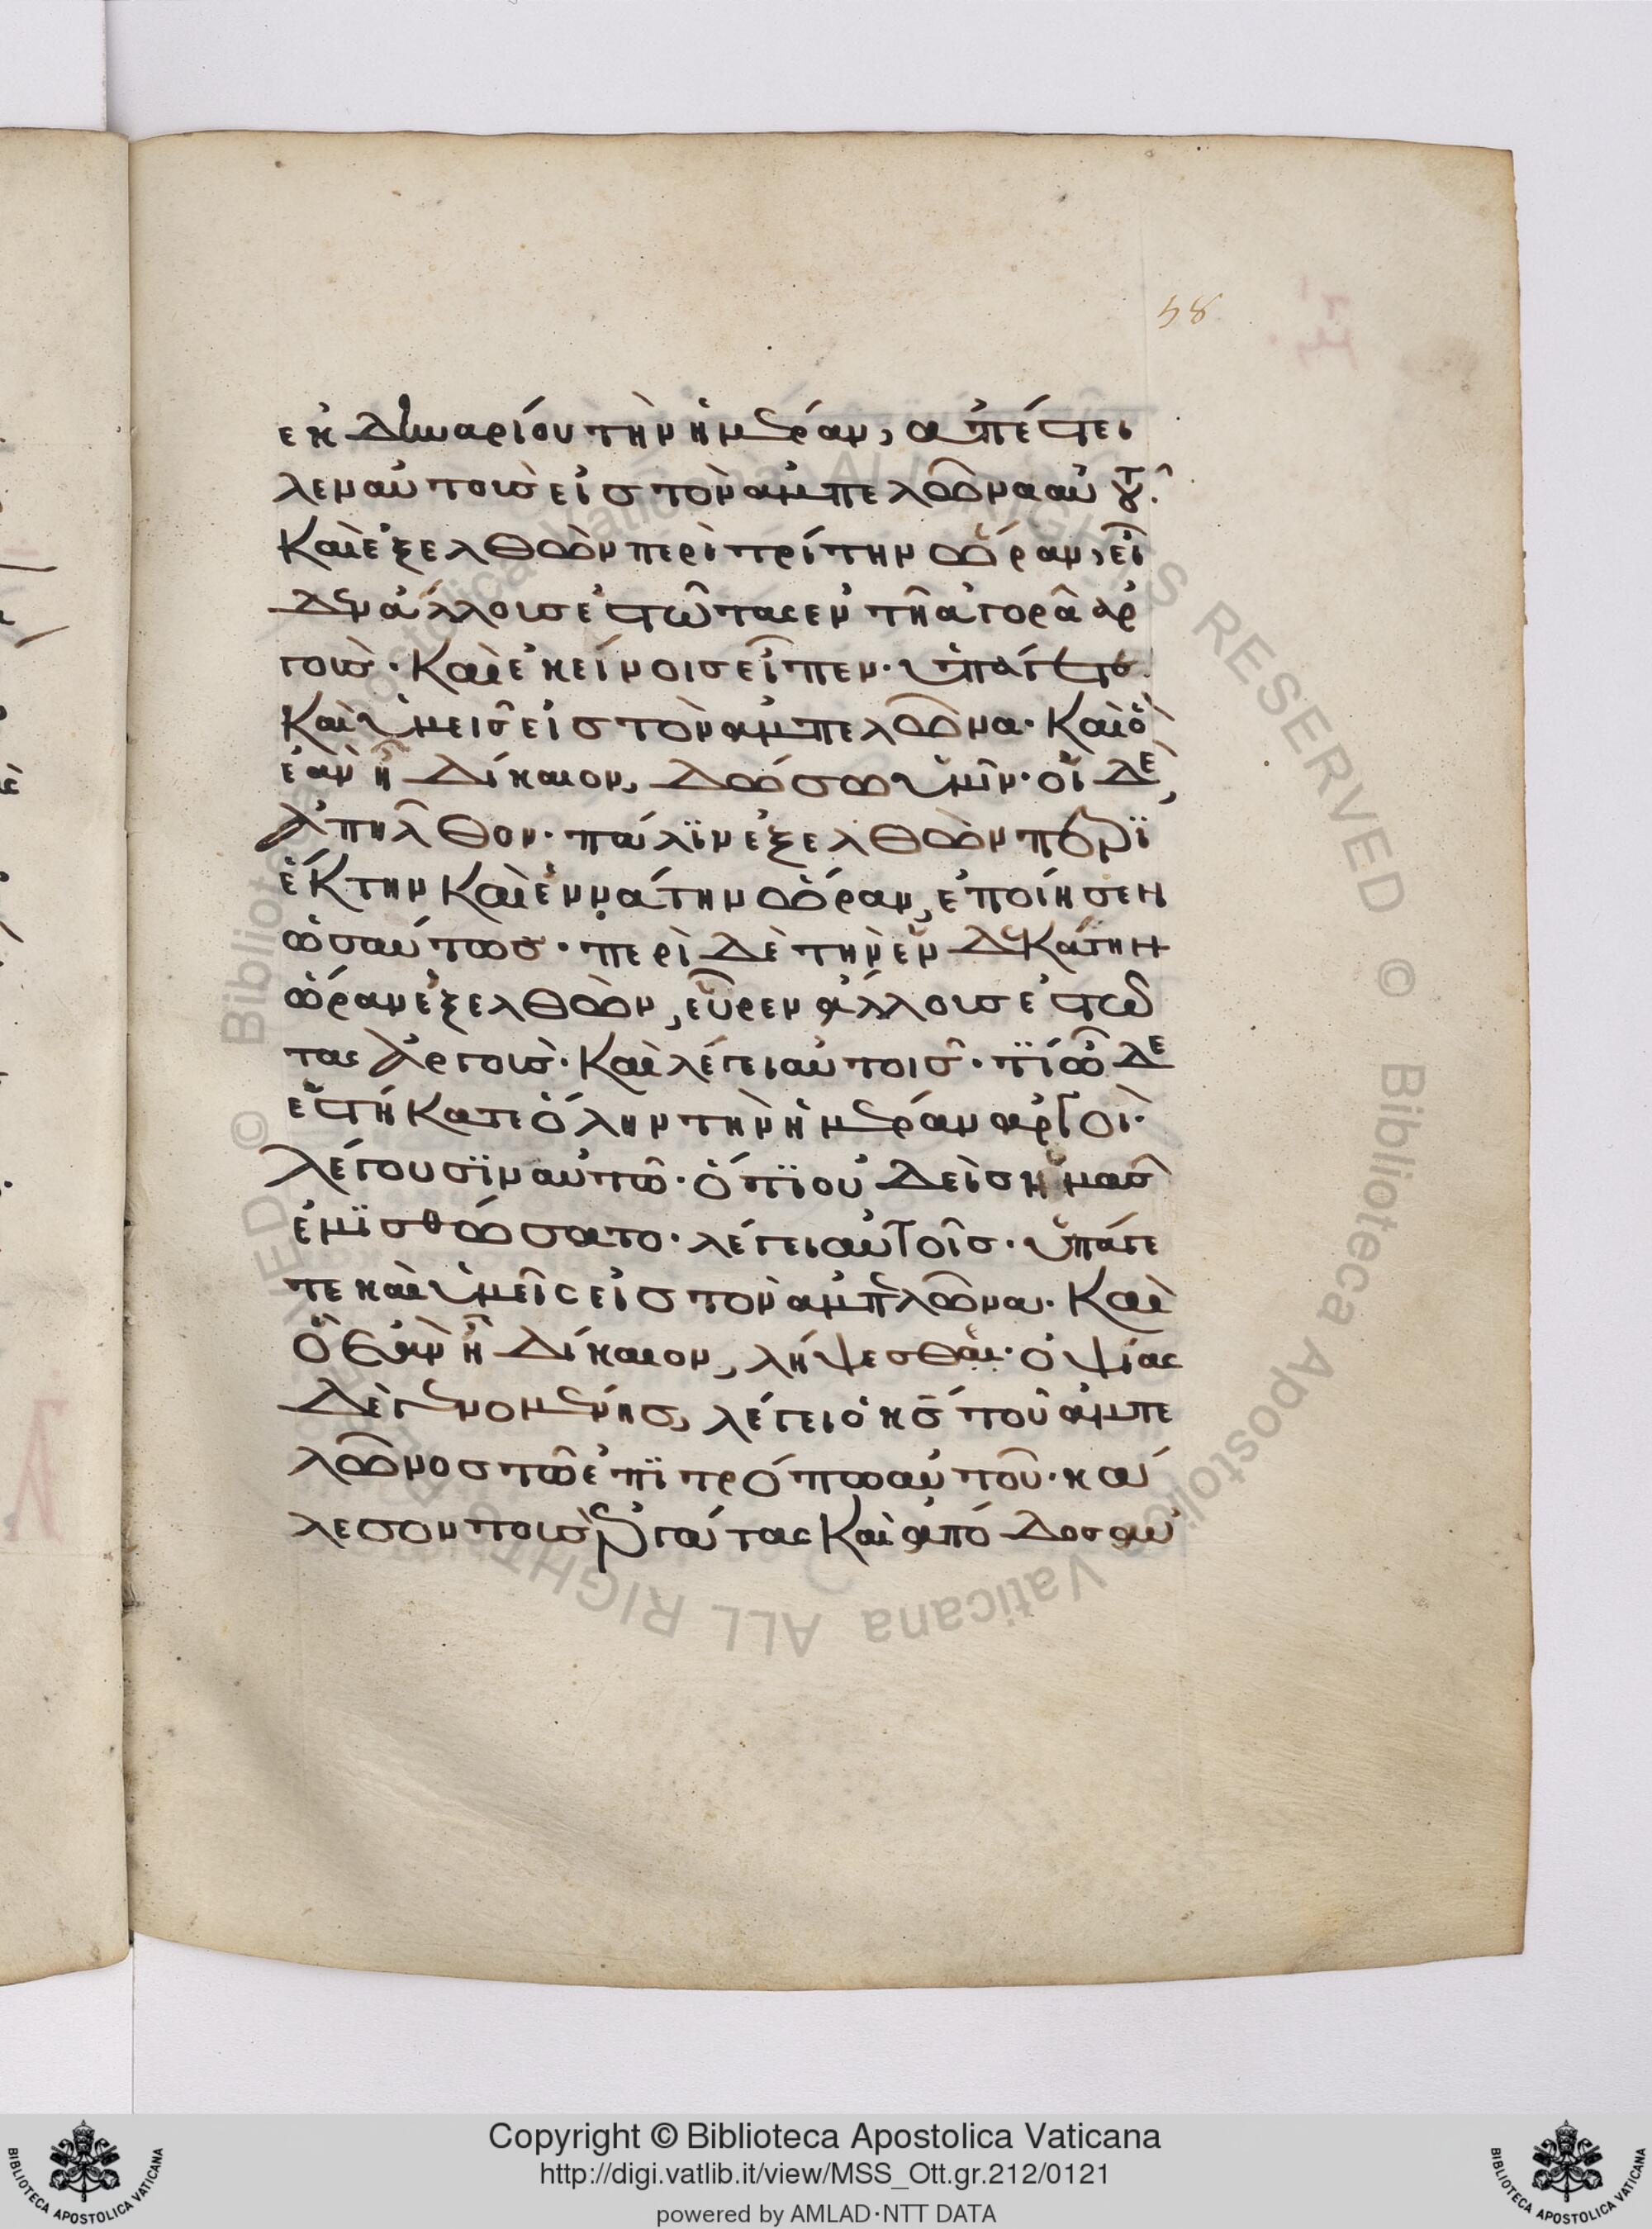 58
ἐκ δηναρίου τὴν ἡμέραν, ἀπέστει
λεν αὐτοὺς εἰς τὸν ἀμπελῶνα αὐτοῦ.
Καὶ ἐξελθὼν περὶ τρίτην ὥραν, εἶ
δεν ἄλλους ἑστῶτας ἐν τῇ ἀγορᾷ ἀρ
γούς· Καὶ ἐκείνοις εἶπεν· ὑπάγετε
Καὶ ὑμεῖς εἰς τὸν ἀμπελῶνα· Καὶ ὃ
ἐὰν ἦ δίκαιον, δώσω ὑμῖν· οἱ δὲ,
ἀπῆλθον· πάλϊν ἐξελθὼν περὶ
ἕκτην Καὶ ἐννάτην ὥραν, ἐποίησεν
ὡσαύτως· περὶ δὲ τὴν ἑνδεκάτην
ὥραν ἐξελθὼν, εὗρεν ἄλλους ἑστῶ
τας ἀργούς· Καὶ λέγει αὐτοῖς· τί ὧδε
ἑστήκατε ὅλην τὴν ἡμέραν ἀργοὶ·
λέγουσϊν αὐτῶ· ὅτϊ οὐδεὶς ἡμᾶς
ἐμϊσθώσατο· λέγει αὐτοῖς· ὑπάγε
τε καὶ ὑμεῖς εἰς τὸν ἀμπελῶνα· Καὶ
ὃ ἐὰν ἦ δίκαιον, λήψεσθαι· ὀψίας
δὲ γενομένης, λέγει ὁ κς τοῦ ἀμπε
λῶνος τῶ ἐπϊτρόπω αὐτοῦ· κά
λεσον τοὺς ἐργάτας Καὶ ἀπόδος αὐ
Copyright © Biblioteca Apostolica Vaticana
http://digi.vatlib.it/view/MSS_Ott.gr.212/0121
powered by AMLAD·NTT DATA
BIBLIOTECA APOSTOLICA VATICANA
BIBLIOTECA APOSTOLICA VATICANA
© Biblioteca Apostolica Vaticana ALL RIGHTS RESERVED © Biblioteca Apostolica Vaticana ALL RIGHTS RESERVED